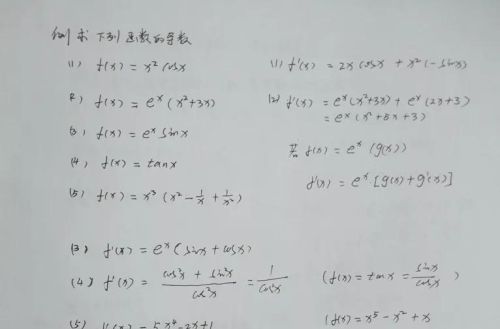 例 求下列函数的导数
(1) f(x) = x² cosx
(1) f'(x) = 2x cosx + x²(-sinx)
(2) f(x) = eˣ (x²+3x)
(2) f'(x) = eˣ(x²+3x) + eˣ(2x+3)
= eˣ(x²+5x+3)
(3) f(x) = eˣ sinx
若 f(x) = eˣ (g(x))
(4) f(x) = tanx
f'(x) = eˣ·[g(x)+g'(x)]
(5) f(x) = x³ (x² - 1/x + 1/x²)
(3) f'(x) = eˣ(sinx + cosx)
(4) f'(x) = (cos²x + sin²x)/cos²x = 1/cos²x
(f(x) = tanx = sinx/cosx)
(5) f'(x) = 5x⁴-2x+1
(f(x) = x⁵ - x² + x